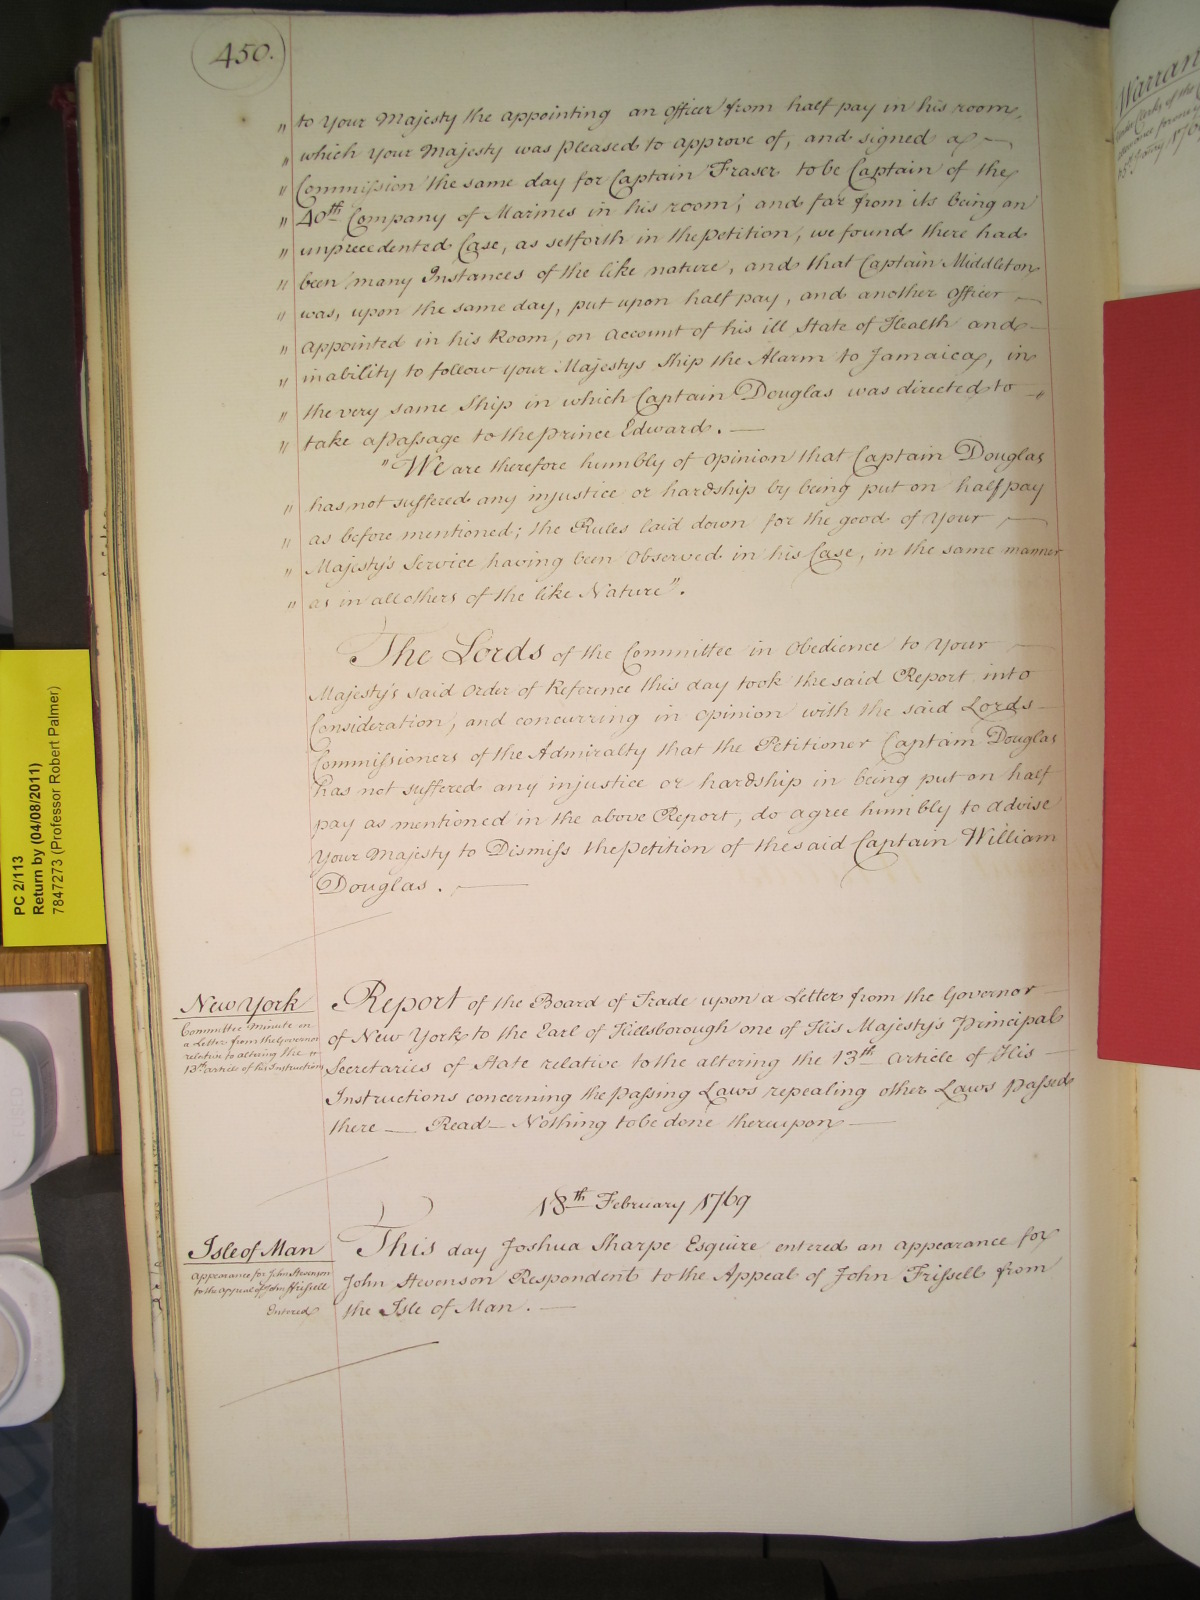 450.
" to Your Majesty the appointing an officer from half pay in his room,
" which Your Majesty was pleased to approve of, and signed a
" Commission the same day for Captain Fraser to be Captain of the
" 40th Company of Marines in his room; and far from its being an
" unprecedented Case, as setforth in the Petition, we found there had
" been many Instances of the like nature, and that Captain Middleton
" was, upon the same day, put upon half pay, and another officer
" appointed in his Room, on account of his ill State of Health and
" inability to follow your Majestys Ship the Alarm to Jamaica, in
" the very same Ship in which Captain Douglas was directed to "
" take a passage to the Prince Edward.
"We are therefore humbly of opinion that Captain Douglas
" has not suffered any injustice or hardship by being put on half pay
" as before mentioned; the Rules laid down for the good of Your
" Majesty's Service having been Observed in his Case, in the same manner
" as in all others of the like Nature".
The Lords of the Committee in Obedience to Your
Majesty's said Order of Reference this day took the said Report into
Consideration, and concurring in opinion with the said Lords
Commissioners of the Admiralty that the Petitioner Captain Douglas
has not suffered any injustice or hardship in being put on half
pay as mentioned in the above Report, do agree humbly to advise
Your Majesty to Dismiss the petition of the said Captain William
Douglas.
New York
Committee Minute on
a Letter from the Governor
relative to altering the
13th article of his Instructions
Report of the Board of Trade upon a Letter from the Governor
of New York to the Earl of Hillsborough one of His Majesty's Principal
Secretaries of State relative to the altering the 13th article of His
Instructions concerning the passing Laws repealing other Laws passed
there — Read — Nothing to be done thereupon —
18th February 1769
Isle of Man
appearance for John Stevenson
to the appeal of John Frissell
Entered
This day Joshua Sharpe Esquire entered an appearance for
John Stevenson Respondent to the Appeal of John Frissell from
the Isle of Man. —
PC 2/113
Return by (04/08/2011)
7847273 (Professor Robert Palmer)
Warran